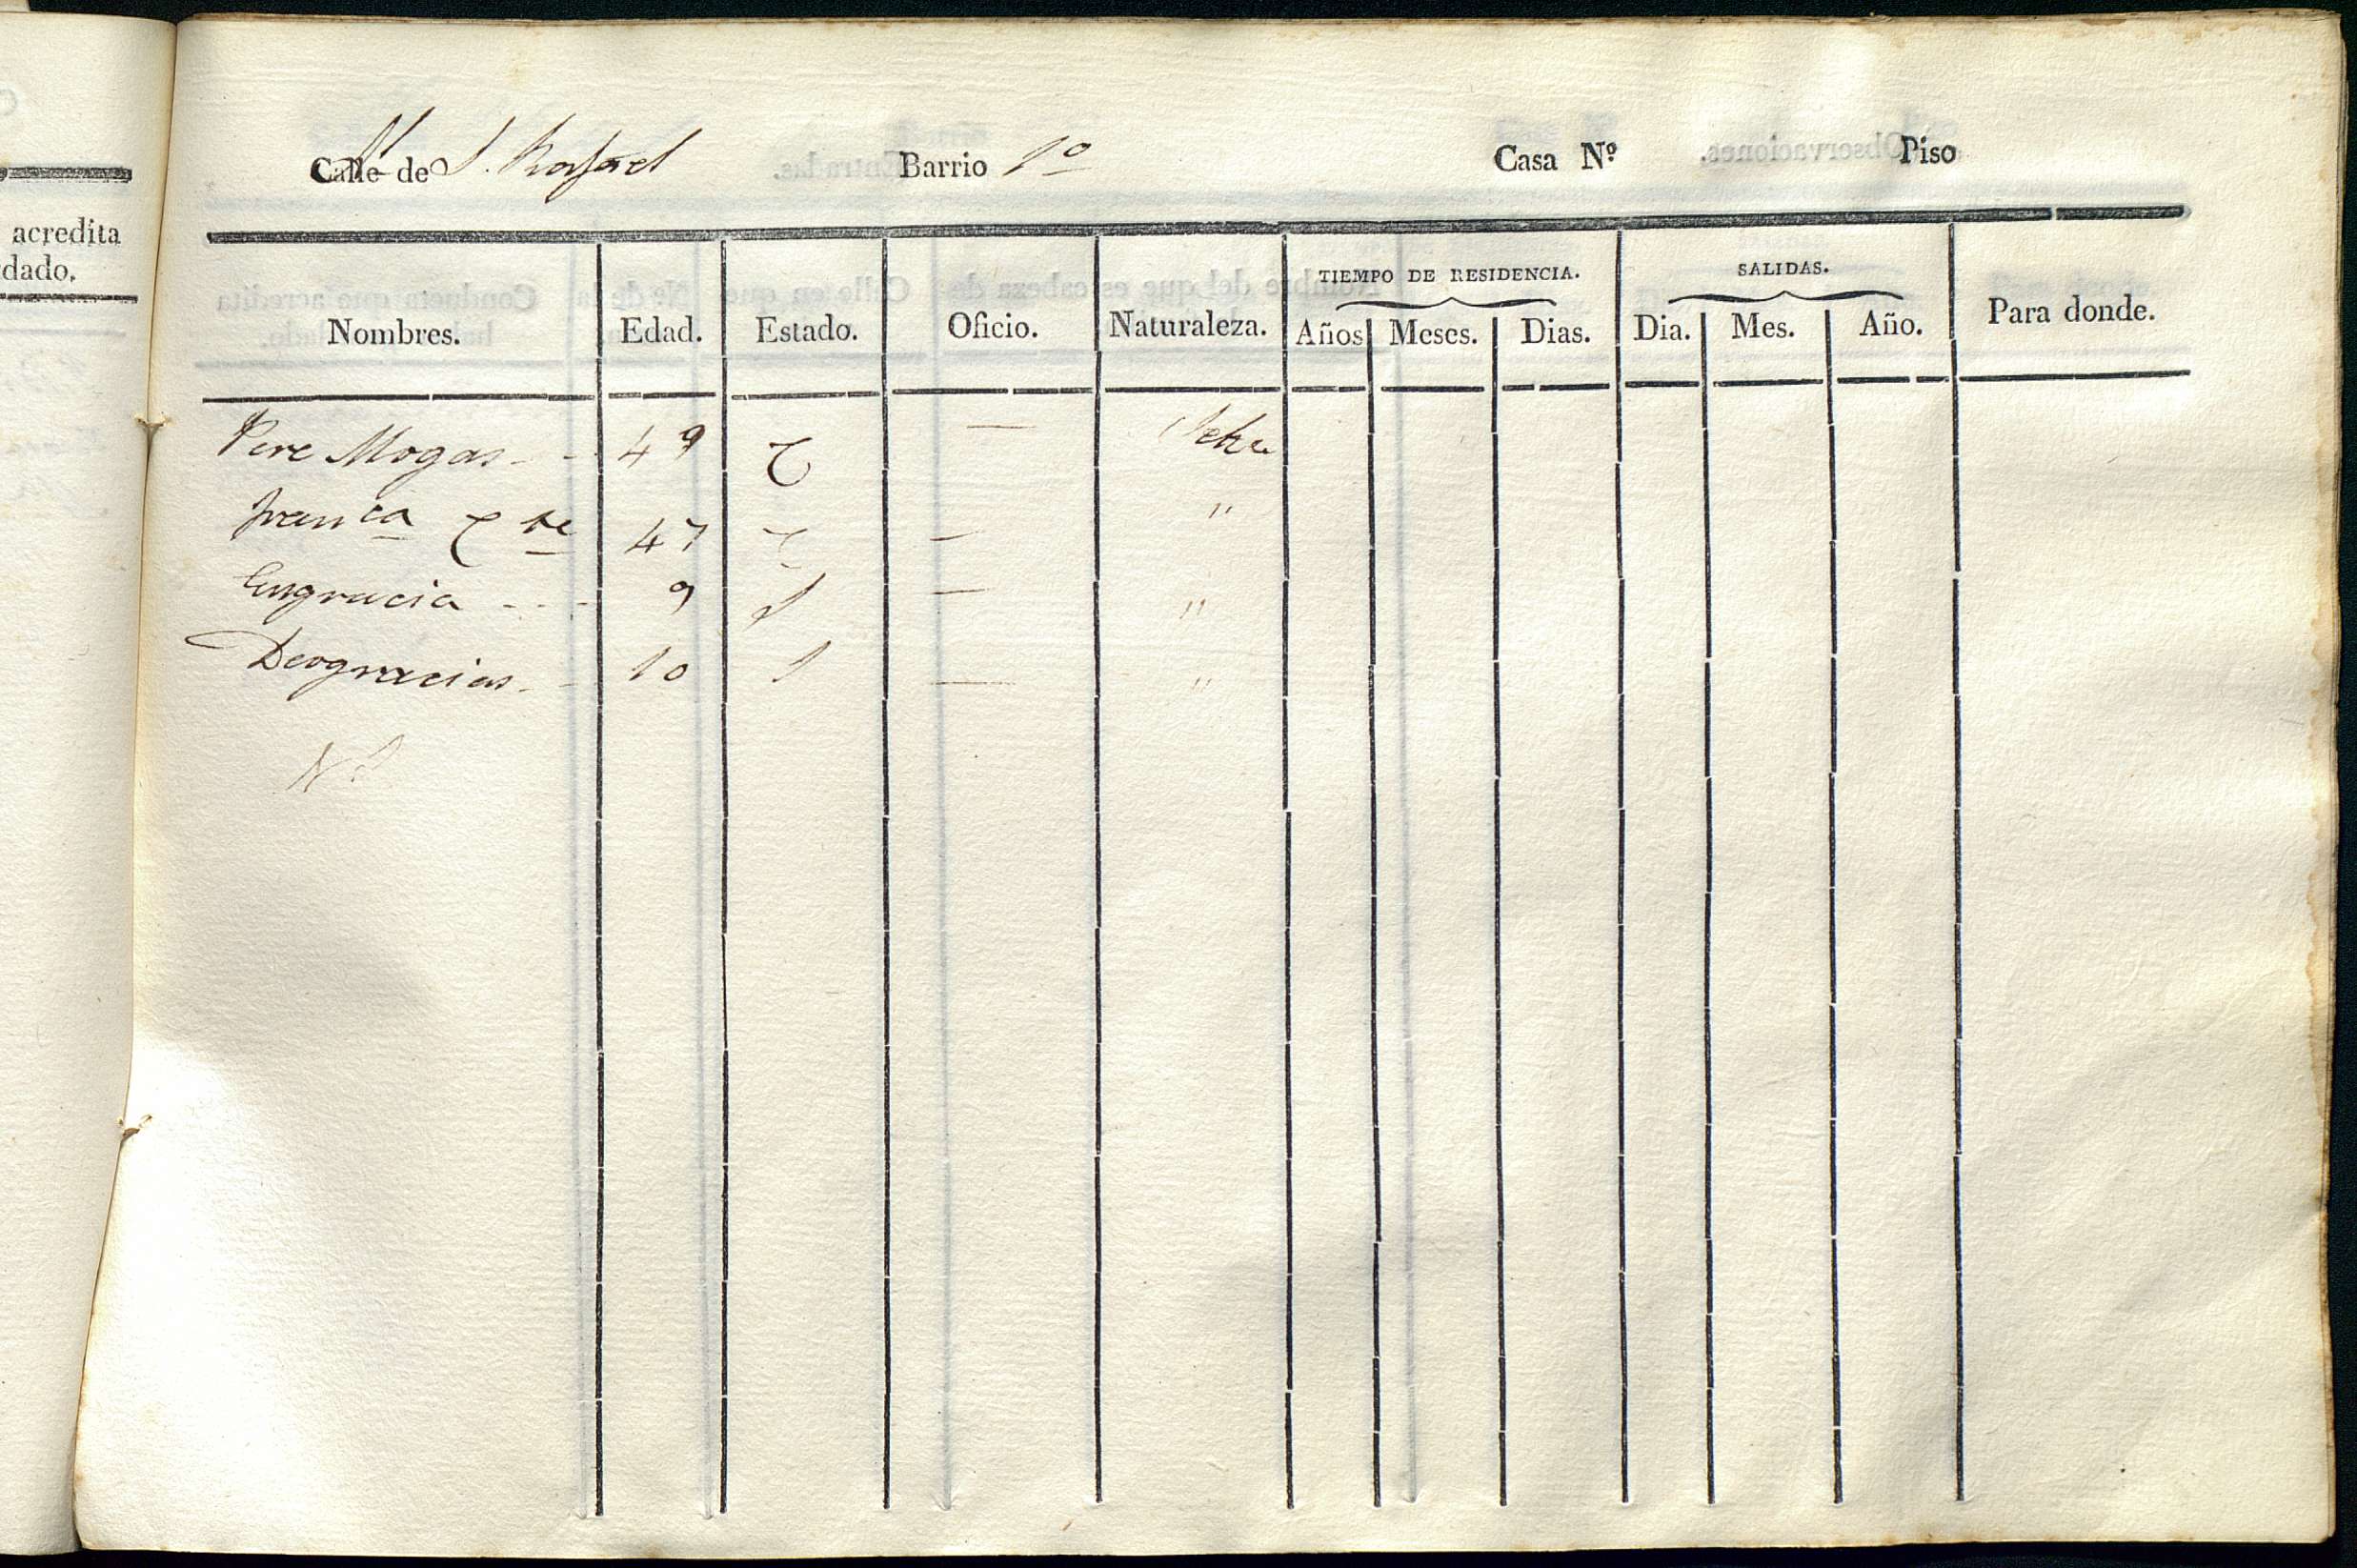 acredita
dado.
Calle de S. Rafael Barrio 1º Casa Nº Piso
Nombres. Edad. Estado. Oficio. Naturaleza. TIEMPO DE RESIDENCIA. Años Meses. Dias. SALIDAS. Dia. Mes. Año. Para donde.
Pere Mogas - - 49 C —
Franca C te 47 C — "
Engracia - - - 9 S — "
Deogracias - - 10 S — "